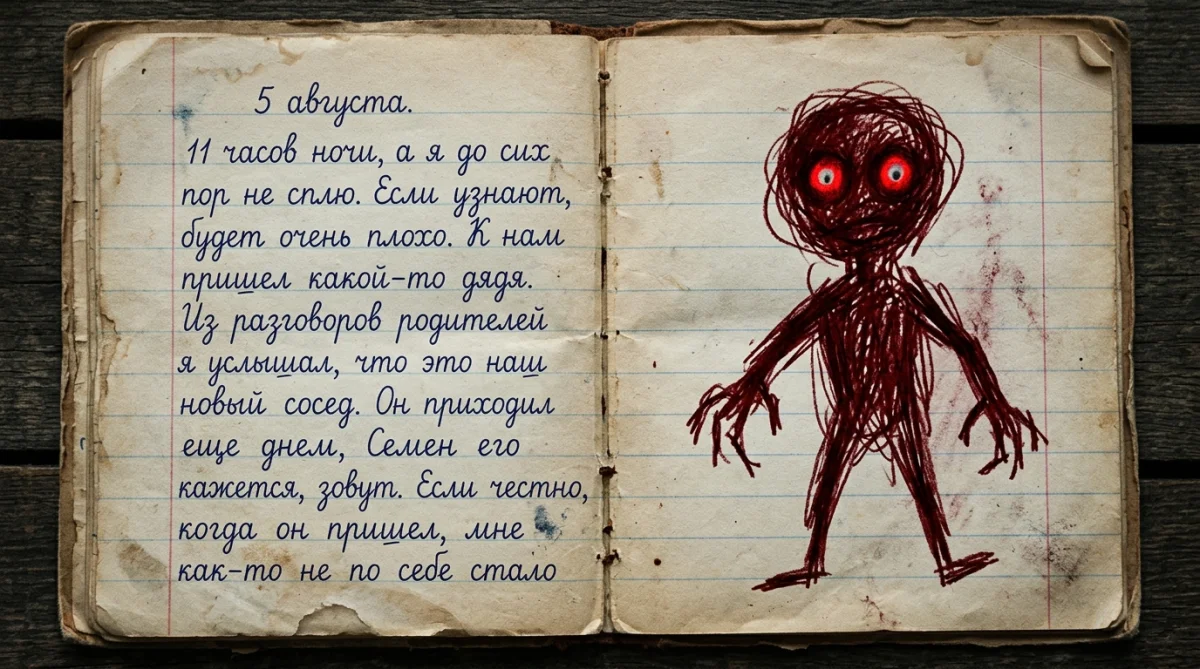 5 августа.
11 часов ночи, а я до сих
пор не сплю. Если узнают,
будет очень плохо. К нам
пришел какой-то дядя.
Из разговоров родителей
я услышал, что это наш
новый сосед. Он приходил
еще днем, Семен его
кажется, зовут. Если честно,
когда он пришел, мне
как-то не по себе стало